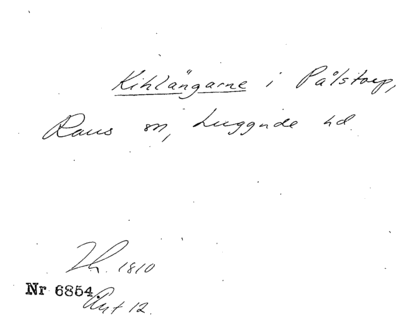 Kihlängarne i Pålstorp,
Raus sn, Luggude hd
Th. 1810
Nr 6854
Akt 12.